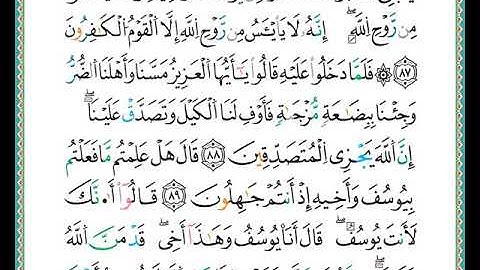 مِن رَّوْحِ ٱللَّهِ ۖ إِنَّهُۥ لَا يَا۟يْـَٔسُ مِن رَّوْحِ ٱللَّهِ إِلَّا ٱلْقَوْمُ ٱلْكَـٰفِرُونَ
٨٧ فَلَمَّا دَخَلُوا۟ عَلَيْهِ قَالُوا۟ يَـٰٓأَيُّهَا ٱلْعَزِيزُ مَسَّنَا وَأَهْلَنَا ٱلضُّرُّ
وَجِئْنَا بِبِضَـٰعَةٍ مُّزْجَىٰةٍ فَأَوْفِ لَنَا ٱلْكَيْلَ وَتَصَدَّقْ عَلَيْنَآ ۖ
إِنَّ ٱللَّهَ يَجْزِى ٱلْمُتَصَدِّقِينَ ٨٨ قَالَ هَلْ عَلِمْتُم مَّا فَعَلْتُم
بِيُوسُفَ وَأَخِيهِ إِذْ أَنتُمْ جَـٰهِلُونَ ٨٩ قَالُوٓا۟ أَءِنَّكَ
لَأَنتَ يُوسُفُ ۖ قَالَ أَنَا۠ يُوسُفُ وَهَـٰذَآ أَخِى ۖ قَدْ مَنَّ ٱللَّهُ